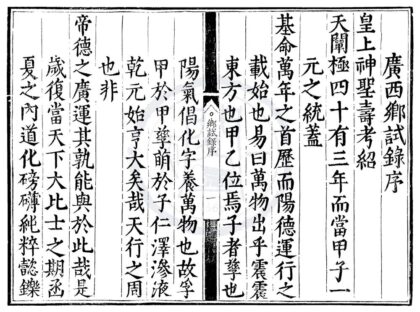 廣西鄉試錄序
皇上神聖壽考紹
天闡極四十有三年而當甲子一
元之統蓋
基命萬年之首歷而陽德運行之
載始也易曰萬物出乎震震
東方也甲乙位焉子者孳也
鄉試錄序
一
陽氣倡化字養萬物也故孚
甲於甲孳萌於子仁澤滲液
乾元始亨大矣哉天行之周
也非
帝德之廣運其孰能與於此哉是
歲復當天下大比士之期函
夏之內道化磅礴純粹懿鑠